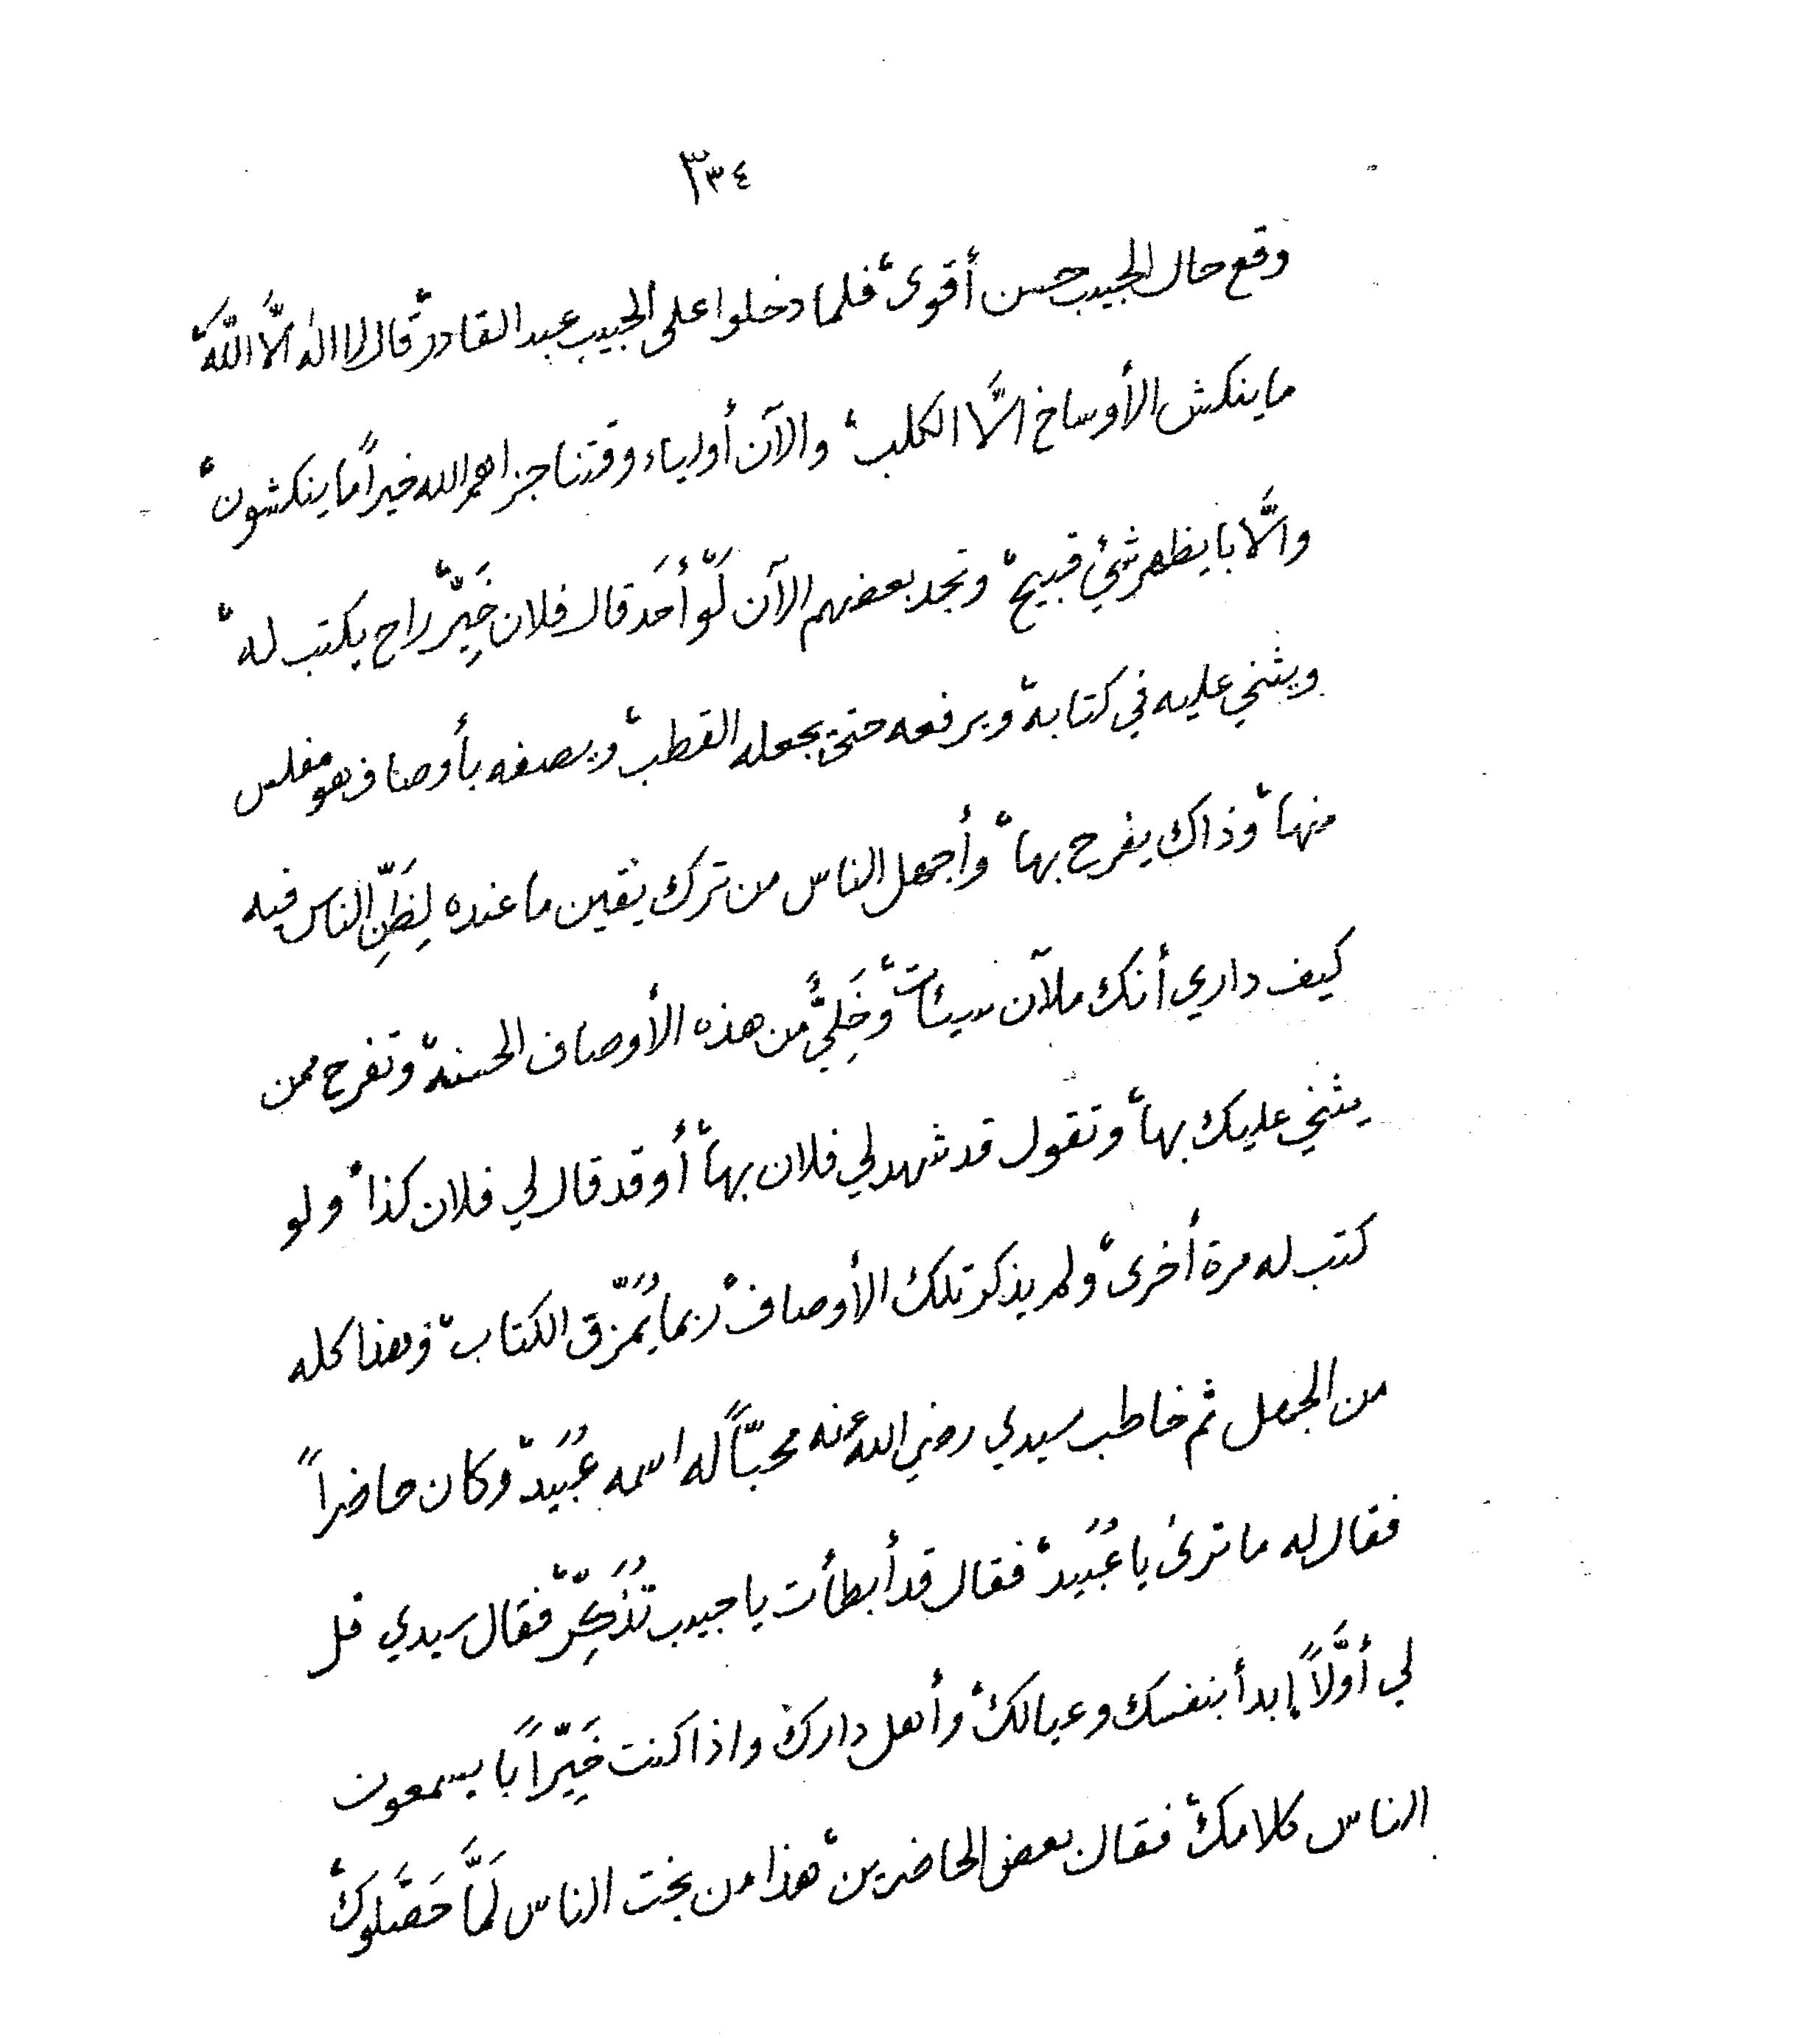 ٣٣٤
وقع حال الحبيب حسن أقوى، فلما دخلوا على الحبيب عبد القادر، قال لا اله الَّا اللَّه،
ما ينكش الأوساخ الَّا الكلب، والآن أولياء وقتنا جزاهم الله خيراً ما ينكشون،
والَّا با يظهر شيْ قبيح، وتجد بعضهم الآن لَوّ أَحَد قال فلان خَيِّر، راح يكتب له،
ويثني عليه في كتابه، ويرفعه حتى يجعله القطب، ويصفه بأوصاف هو مفلس
منها، وذاك يفرح بها، وأجهل الناس من ترك يقين ما عنده لِظَنِّ الناس فيه
كيف داري أنك ملآن سيئات، وخَلِيٌّ من هذه الأوصاف الحسنه، وتفرح ممن
يثني عليك بها، وتقول قد شهد لي فلان بها، أو قد قال لي فلان كذا، ولو
كتب له مرة أخرى، ولم يذكر تلك الأوصاف، ربما يُمَزّق الكتاب، وهذا كله
من الجهل ثم خاطب سيدي رضي الله عنه محبّاً له اسمه عُبَيد، وكان حاضراً
فقال له ما ترىٰ يا عُبَيد، فقال قد أبطأت يا حبيب تُذَكِّر، فقال سيدي قل
لي أوَّلاً إبدأ بنفسك وعيالك، وأهل دارك، واذا كنت خَيِّراً با يسمعون
الناس كلامك، فقال بعض الحاضرين، هذا من بخت الناس لَمَّا حَصَّلوك،